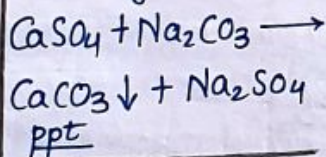 CaSO4 + Na2CO3 ⟶
CaCO3↓ + Na2SO4
ppt